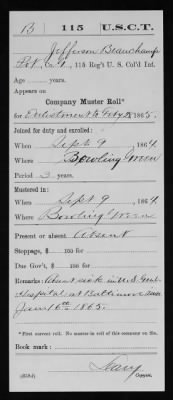 B 115 U.S.C.T.
Jefferson Beauchamp
Pvt, Co. , 115 Reg't U. S. Col'd Inf.
Age years.
Appears on
Company Muster Roll*
for Enlistment to Feby 28, 1865.
Joined for duty and enrolled:
When Sept 9, 1864
Where Bowling Green
Period 3 years.
Mustered in:
When Sept 9, 1864
Where Bowling Green
Present or absent Absent
Stoppage, $ 100 for
Due Gov't, $ 100 for
Remarks: Absent sick in U.S. Genl
Hospital at Baltimore since
Jany 16th 1865.
*First correct roll. No muster-in roll of this company on file.
Book mark:
Copyist.